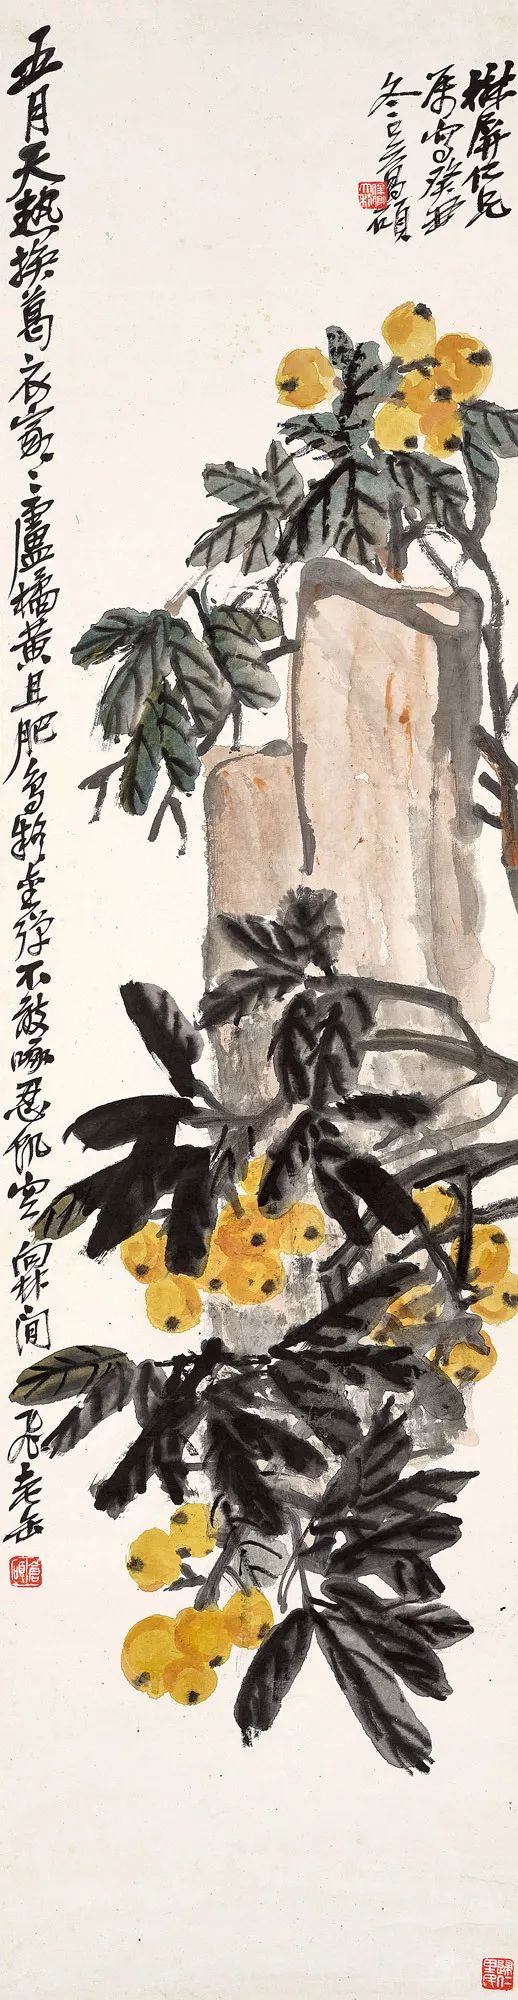 屏仁兄
屬寫癸丑
冬吳昌碩
五月天熱換葛衣家〻盧橘黃且肥鳥疑金彈不敢啄忍飢空向林間飛老缶
倉碩
歸仁里民